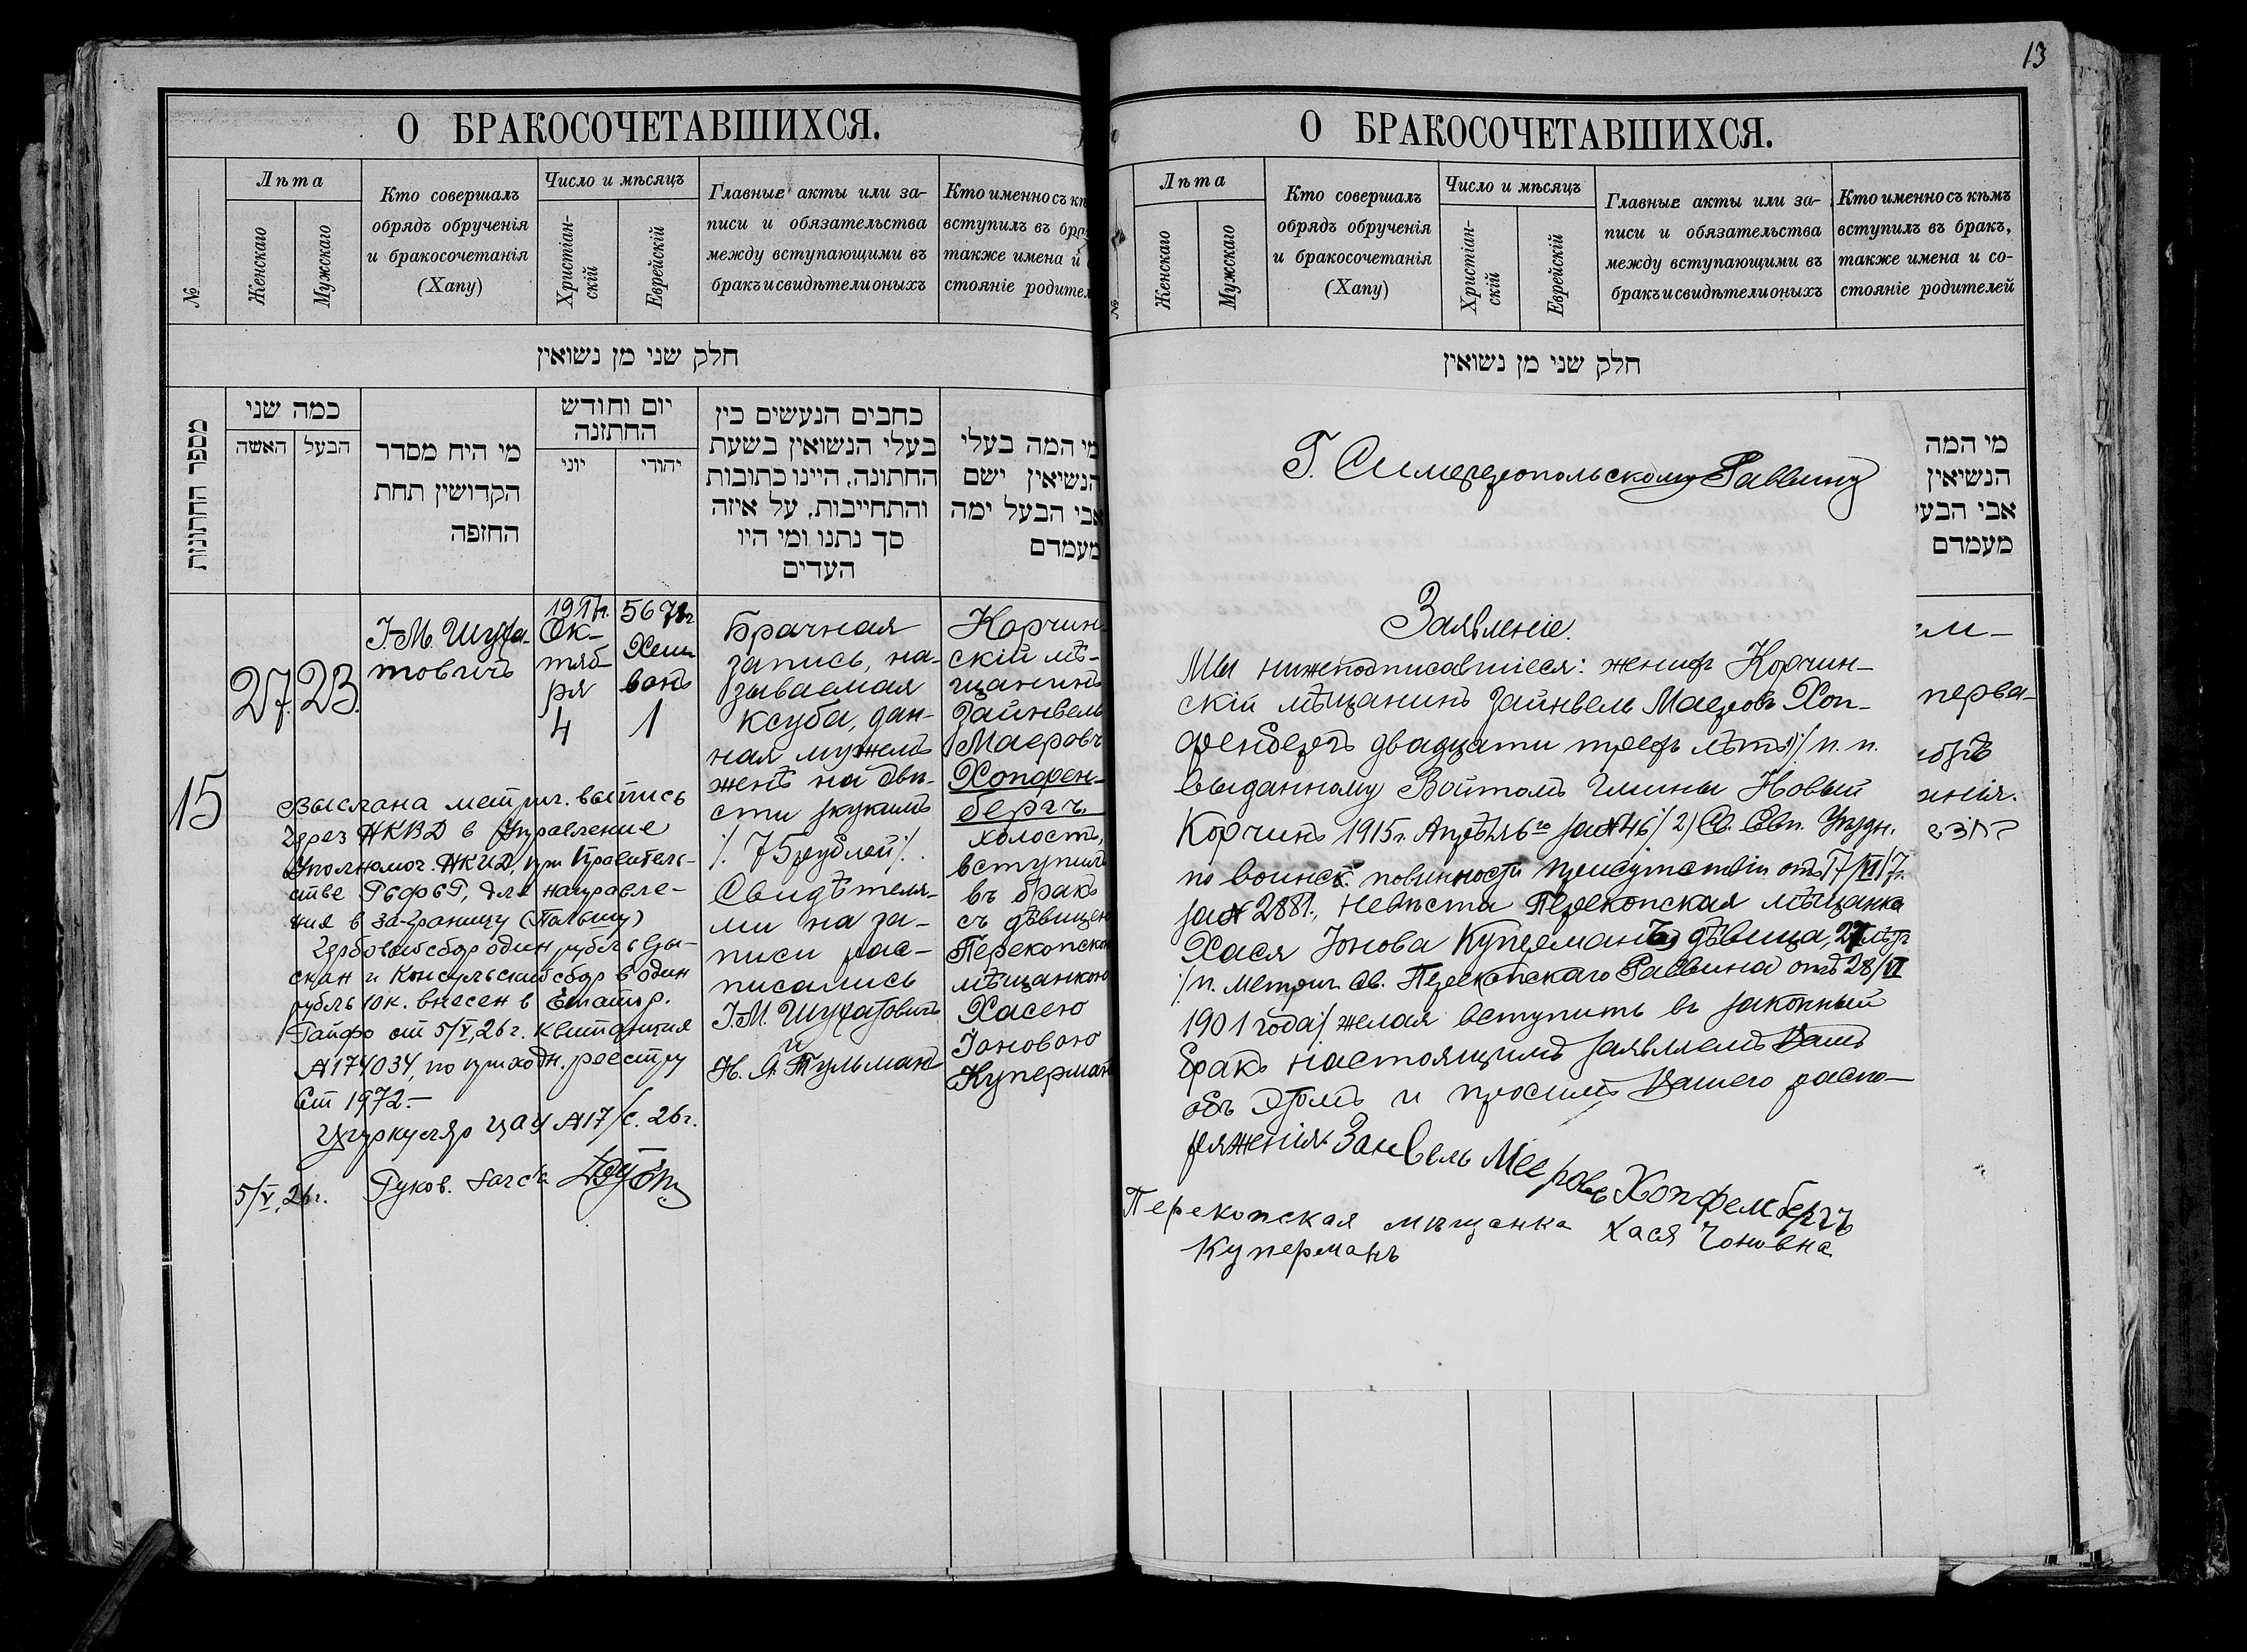 О БРАКОСОЧЕТАВШИХСЯ.
№
Лѣта
Женскаго
Мужскаго
Кто совершалъ
обрядъ обрученія
и бракосочетанія
(Хапу)
Число и мѣсяцъ
Христіан-
скій
Еврейскій
Главные акты или за-
писи и обязательства
между вступающими въ
бракъ и свидѣтели оныхъ
Кто именно съ
вступилъ въ
также имена и
стояніе
חלק שני מן נשואין
מספר החתונות
כמה שני
האשה
הבעל
מי היח מסדר
הקדושין תחת
החופה
יום וחודש
החתונה
יוני
יהודי
כתבים הנעשים בין
בעלי הנשואין בשעת
החתונה, היינו כתובות
והתחייבות, על איזה
סך נתנו ומי היו
העדים
מי המה בעלי
הנשיאין ישם
אבי הבעל ימה
מעמדם
15
27.
23.
І-М. Шуха-
товичъ
Ок-
тяб
ря
4
Хеш
ванъ
1
Брачная
запись, на-
зываемая
ксуба, дан-
ная мужемъ
женѣ на две-
сти
/. 75 рублей /.
Свидѣтеля-
ми на за-
писи рас-
писались
І.М. Шухатовичъ
и
Н. Я. Тульман
Корчин-
скій мѣ-
щанинъ
Зайнвель
Маеровъ
Хопфен-
бергъ.
холостъ,
вступилъ
въ бракъ
съ дѣвицею
Перекопскою
мѣщанкою
Хасею
Іоновою
Куперманъ
Выслана метрич. выпись
через НКВД в Управление
Уполномоч. НКИД, при Правитель-
стве РСФСР, для направле-
ния в за-границу (Польшу)
Гербовый сбор один рубль взы-
скан и Консульский сбор в один
рубль 10к. внесен в
от 5/V, 26 г. квитанция
№174034, по приходн. реестру
Ст 1972.-
Циркуляр ЦАУ №17/с. 26г.
5/V, 26г.
Руков.
13
О БРАКОСОЧЕТАВШИХСЯ.
№
Лѣта
Женскаго
Мужскаго
Кто совершалъ
обрядъ обрученія
и бракосочетанія
(Хапу)
Число и мѣсяцъ
Христіан-
скій
Еврейскій
Главные акты или за-
писи и обязательства
между вступающими въ
бракъ и свидѣтели оныхъ
Кто именно съ кѣмъ
вступилъ въ бракъ,
также имена и со-
стояніе родителей
חלק שני מן נשואין
מי המה
הנשיאין
אבי הבעי
מעמדם
Г. Симферопольскому Раввину
Заявленіе.
Мы нижеподписавшіеся: женихъ Корчин-
скій мѣщанинъ Зайнвель Маеровъ Хоп-
фенбергъ двадцати трехъ лѣтъ 1)/ п. п.
выданному Войтомъ Гмины Новый
Корчинъ 1915г. Апрѣля 6го за №46/ 2) Св. Евп. Уѣздн.
по воинск. повинности присутствія отъ 17/VI 17г.
за № 2881., невѣста Перекопская мѣщанка
Хася Іонова Куперманъ дѣвица, 27 лѣтъ
/п. метрич. св. Перекопскаго Раввина отъ 28/VI
1901 года/ желая вступить въ законный
бракъ настоящимъ заявляемъ Вамъ
объ этомъ и просимъ Вашего распо-
ряженія. Занвель Мееровъ Хопфембергъ
Перекопская мѣщанка Хася Іоновна
Куперманъ